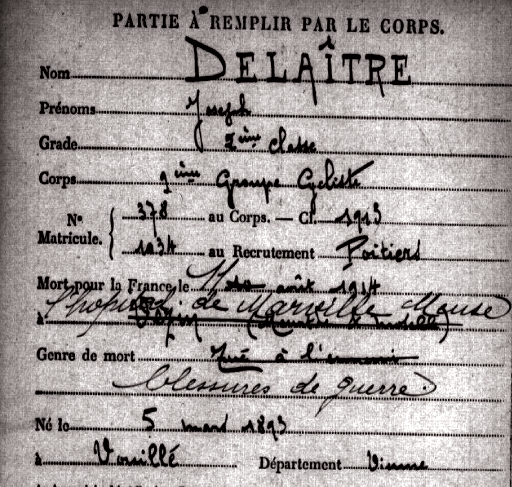 PARTIE À REMPLIR PAR LE CORPS.
Nom DELAÎTRE
Prénoms Joseph
Grade 2ème classe
Corps Groupe Cycliste
Nº Matricule. 378 au Corps. — Cl. 1913
1034 au Recrutement Poitiers
Mort pour la France le 11 août 1914
l'hopital de Marville Meuse
à
Genre de mort Tué à l'ennemi
blessures de guerre
Né le 5 mars 1893
à Vouillé Département Vienne